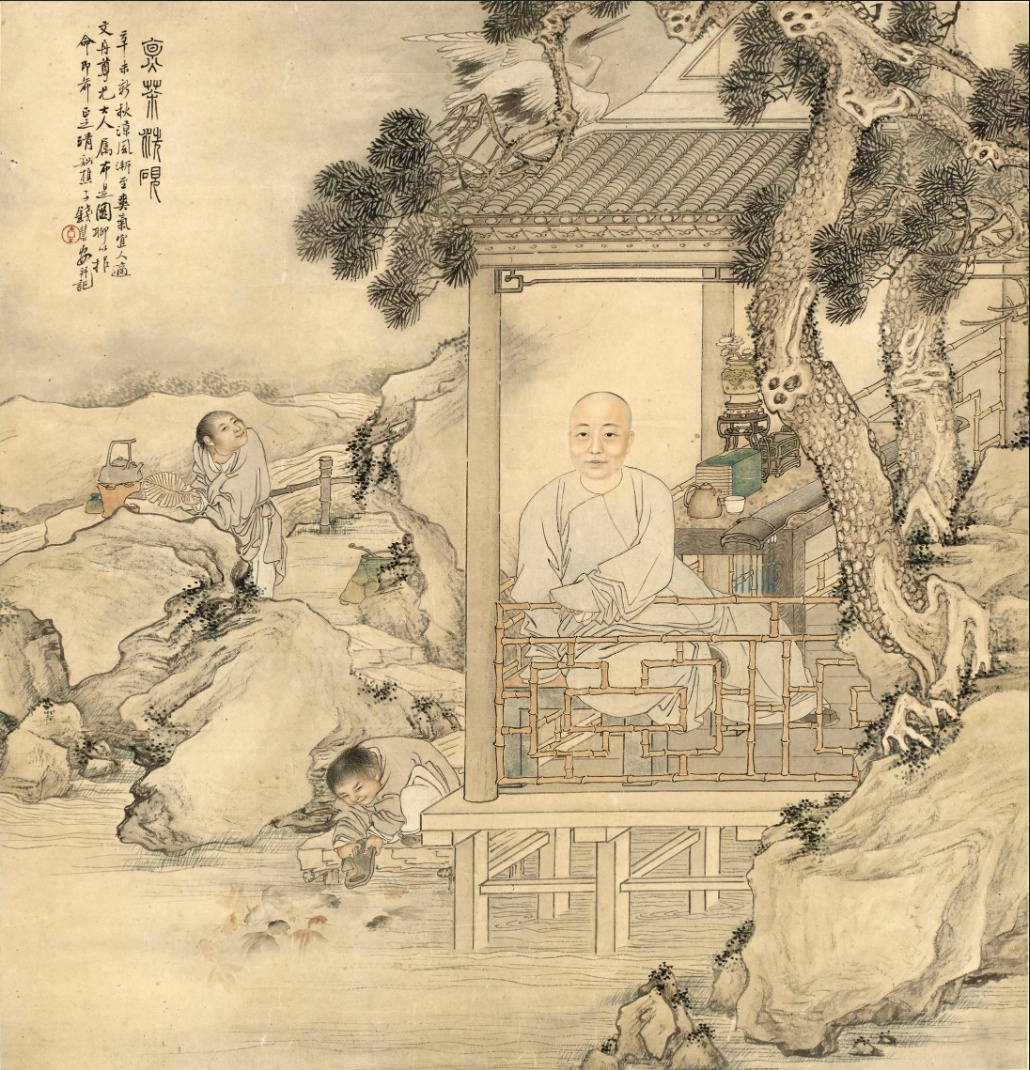 烹茶洗硯
辛未新秋涼風漸至爽氣宜人適
文舟尊兄大人屬布是圖聊以報
命即希正之清谿樵子錢慧安并記